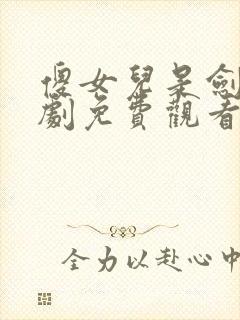 傻女兒呆劍
劇免費觀看
全力以赴心中